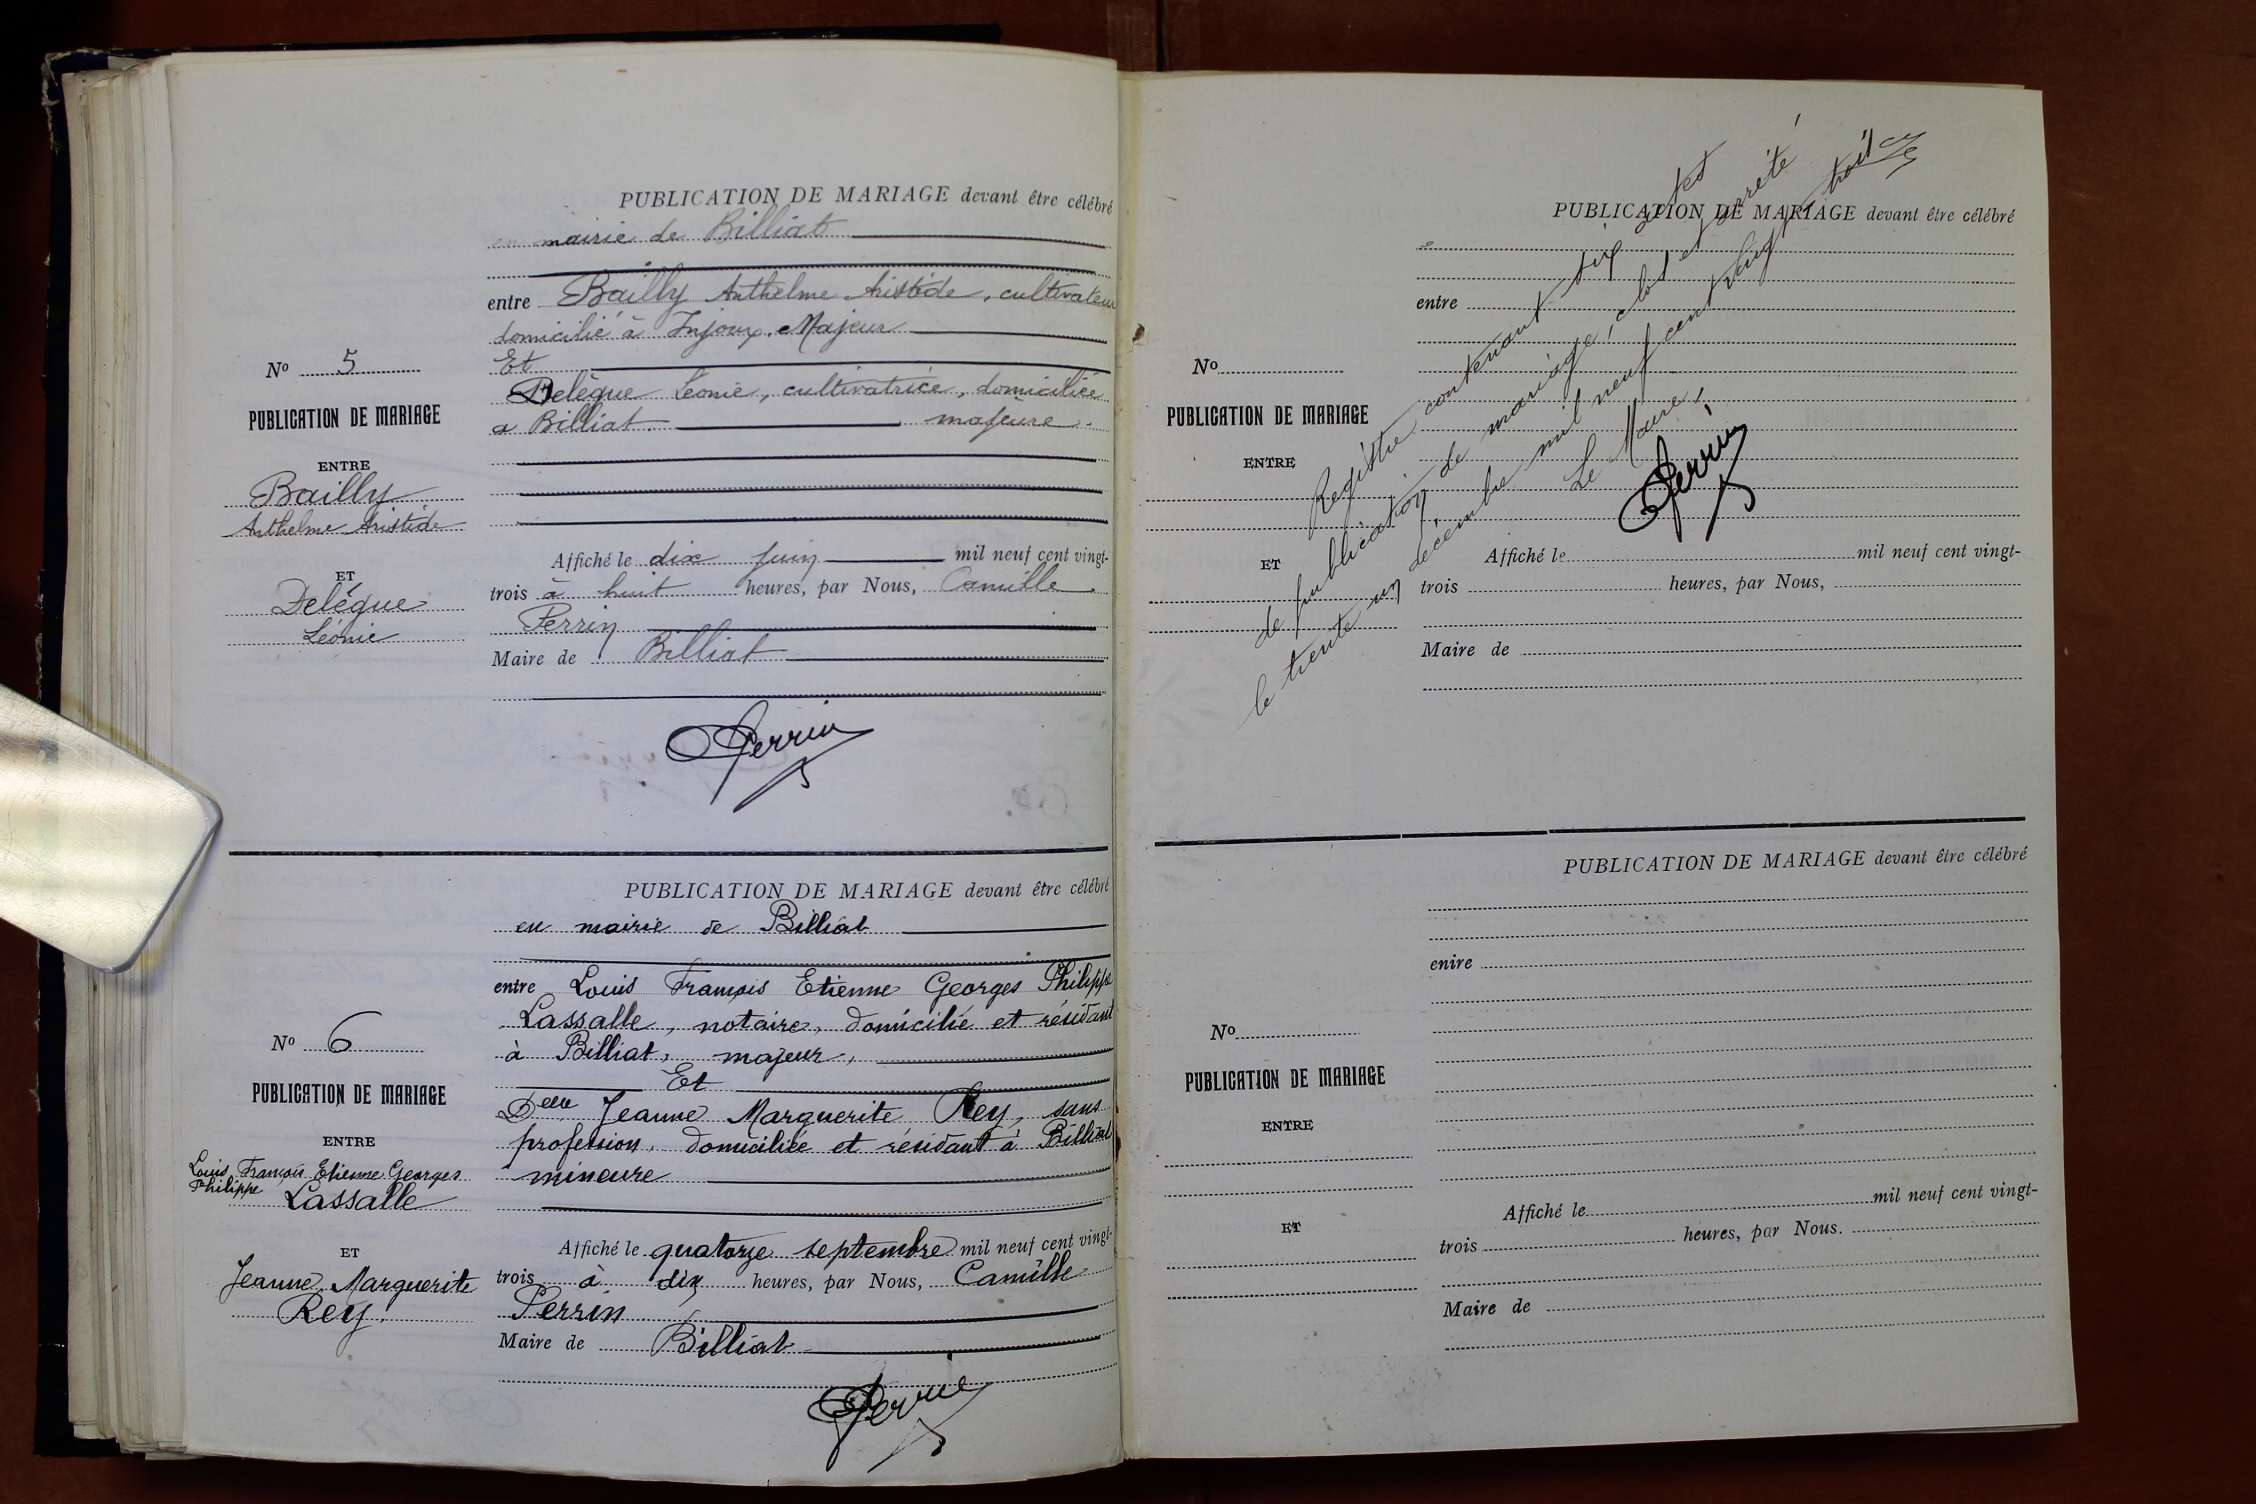 PUBLICATION DE MARIAGE devant être célébré
en mairie de Billiat
entre Bailly Anthelme Aristide, cultivateur
domicilié à Injoux. Majeur
Et
Delègue Léonie, cultivatrice, domiciliée
a Billiat. majeure.
No 5
PUBLICATION DE MARIAGE
ENTRE
Bailly
Anthelme Aristide
ET
Delègue
Léonie
Affiché le dix juin mil neuf cent vingt-
trois à huit heures, par Nous, Camille
Perrin
Maire de Billiat
Perrin
PUBLICATION DE MARIAGE devant être célébré
en mairie de Billiat
entre Louis François Etienne Georges Philippe
Lassalle, notaire, domicilié et résidant
à Billiat, majeur,
Et
Delle Jeanne Marguerite Rey, sans
profession, domiciliée et résidant à Billiat
mineure
No 6
PUBLICATION DE MARIAGE
ENTRE
Louis François Etienne Georges
Philippe Lassalle
ET
Jeanne Marguerite
Rey.
Affiché le quatorze septembre mil neuf cent vingt-
trois à dix heures, par Nous, Camille
Perrin
Maire de Billiat
Perrin
PUBLICATION DE MARIAGE devant être célébré
entre
No
PUBLICATION DE MARIAGE
ENTRE
ET
Affiché le mil neuf cent vingt-
trois heures, par Nous,
Maire de
Registre contenant six actes
de publication de mariage, clos et arrêté
le trente un décembre mil neuf cent vingt trois
Le Maire,
Perrin
PUBLICATION DE MARIAGE devant être célébré
entre
No
PUBLICATION DE MARIAGE
ENTRE
ET
Affiché le mil neuf cent vingt-
trois heures, par Nous.
Maire de